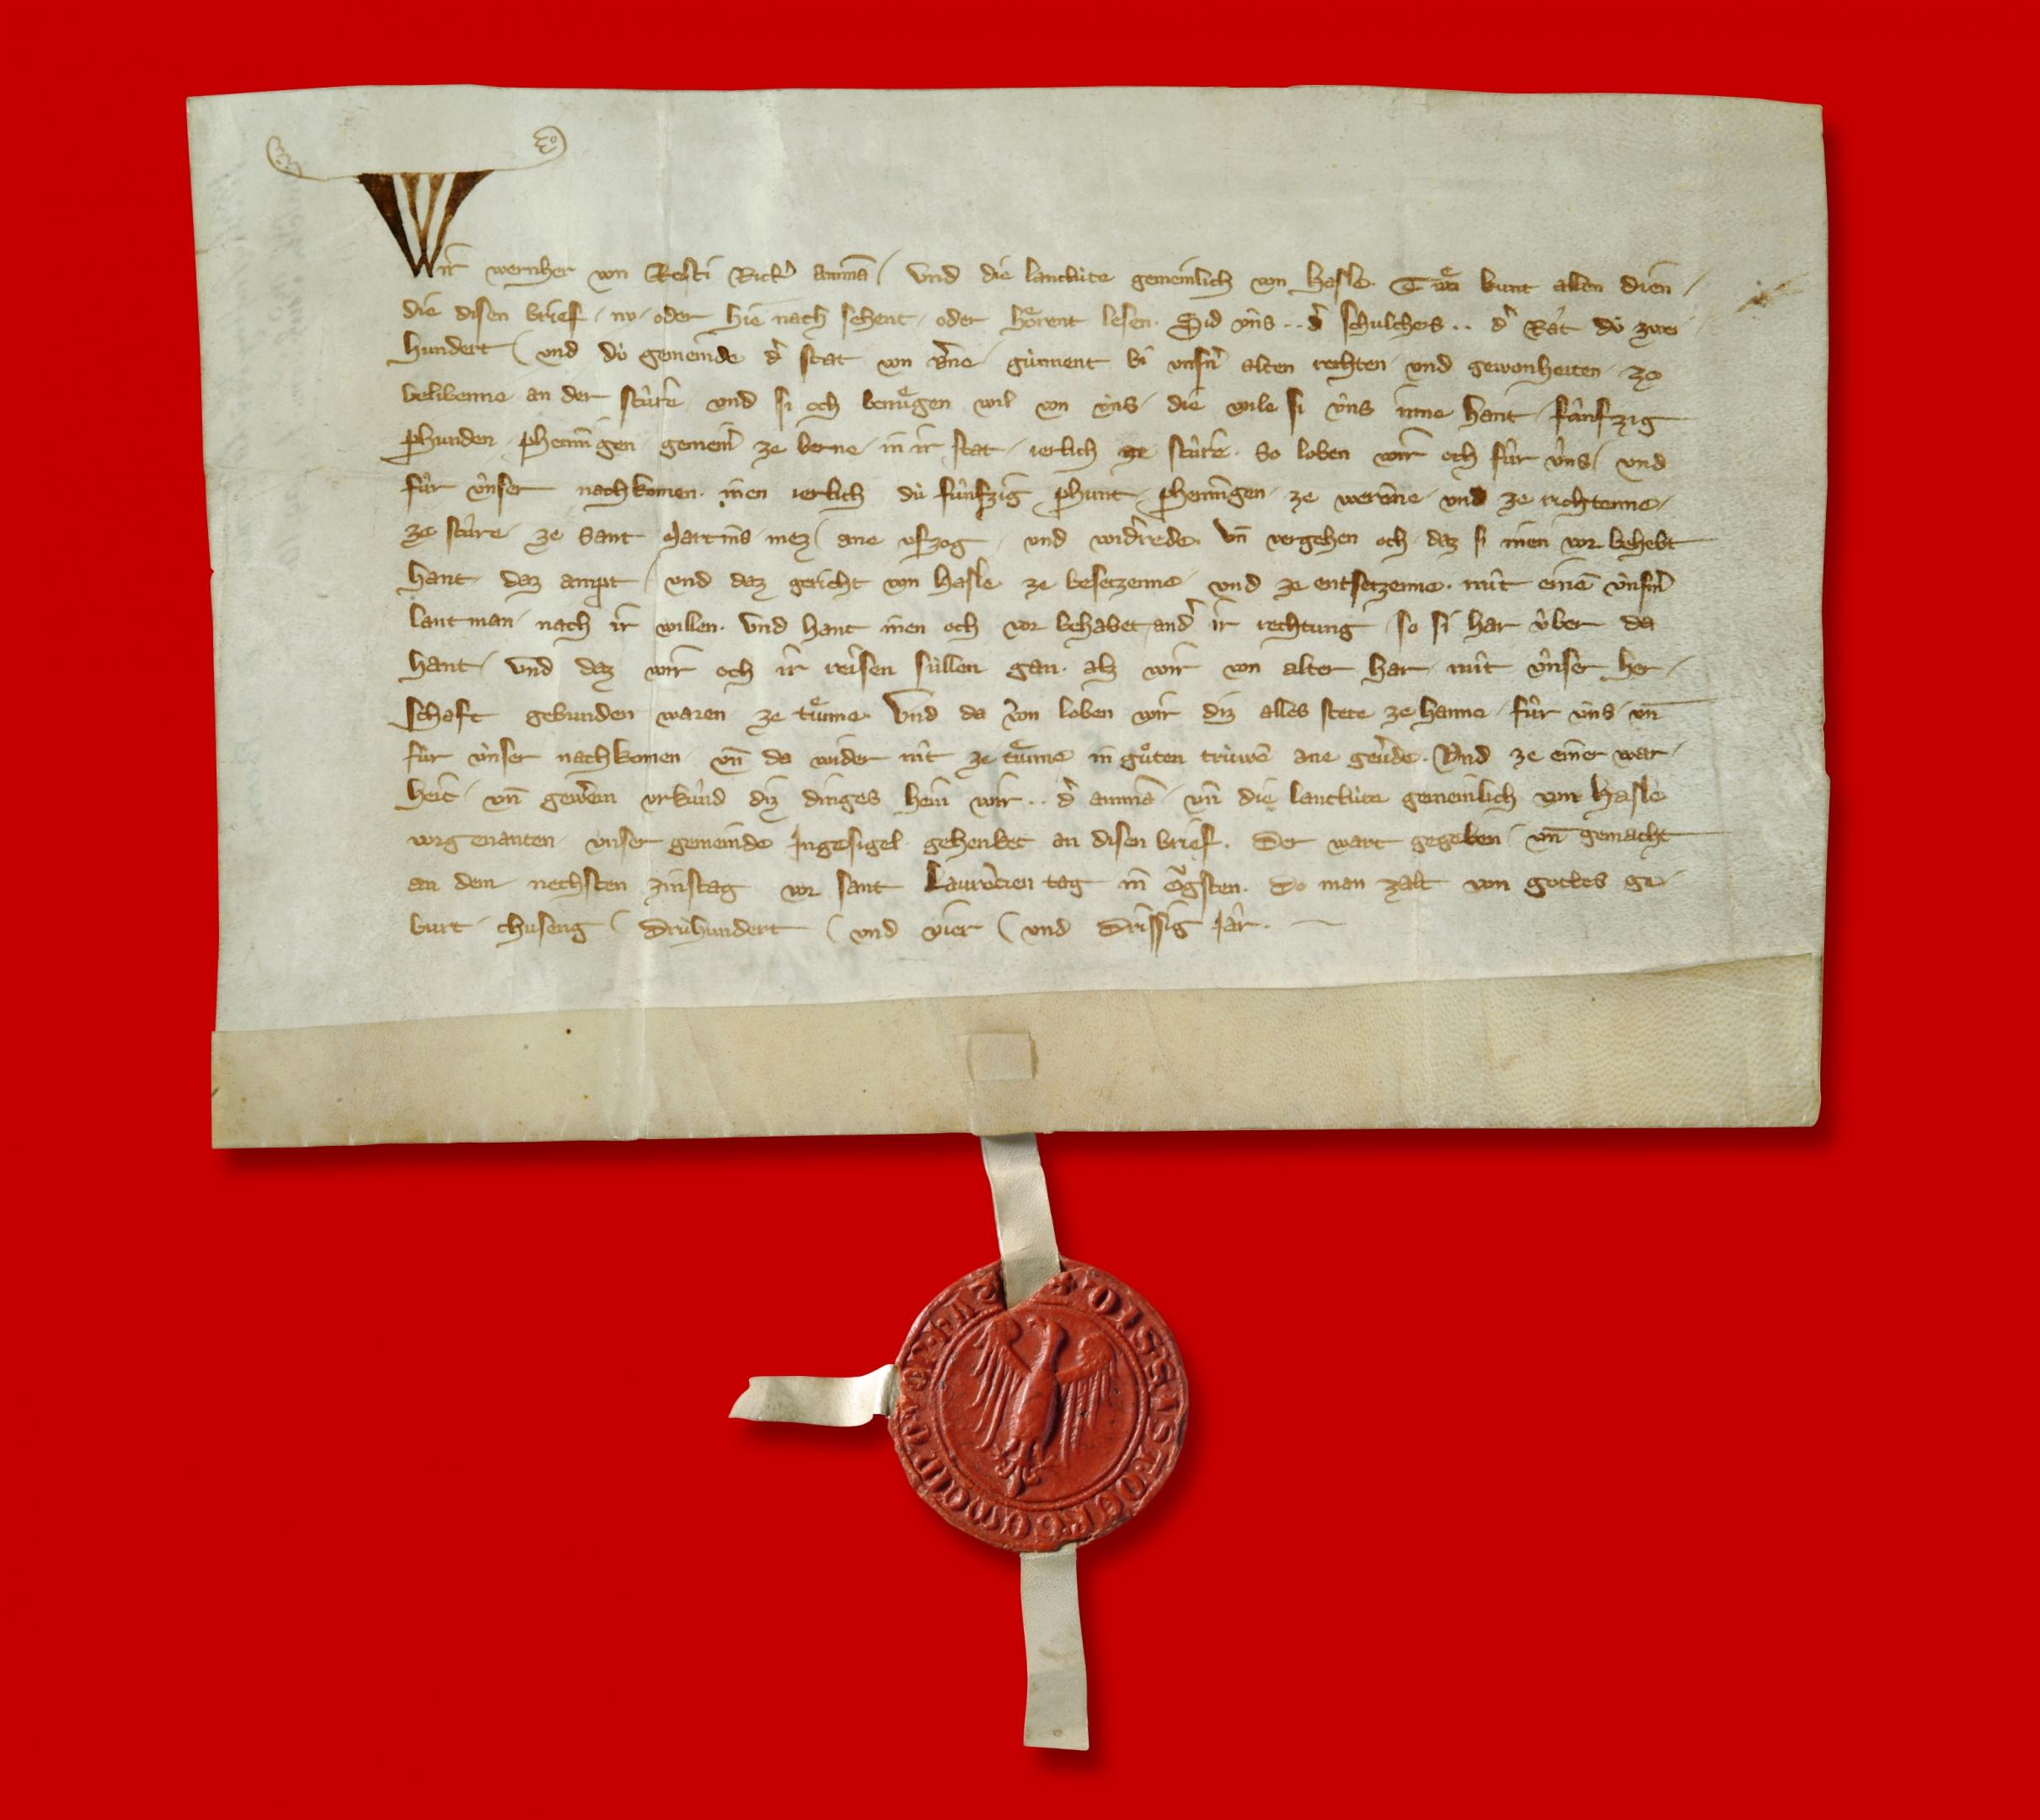 Wir wernher von Resti Ritt' amman / Vnd die lantlùte gemeinlich von Hasle. Tuͤn kunt allen dien /
die disen brief / nv / oder hie nach sehent / oder hoͤrent lesen. Sid v̂ns .. d' schultheis .. d' Rât dù zwei
hundert / vnd dù gemeinde d' stat von B'ne / gùnnent bi vnsn' alten rechten / vnd gewonheiten / ze
belibenne an der stûre / vnd si och benuͤgen wil von v̂ns / die wile si v̂ns inne hant / fûnfzig
phunden phenningen gemein' ze berne / in ir stat / ierlich ze stûre. So loben wir och fûr v̂ns / vnd
fûr v̂nser nachkomen. inen ierlich dù fûnfzig phunt phenningen / ze werenne / vnd ze richtenne /
ze stûre / ze Sant Martins mez / ane vfzog / vnd wid'rede. Vn̄ vergehen och / daz si inen vor behebt
hant / daz ampt / vnd daz gericht von Hasle ze besetzenne / vnd ze entsetzenne. mit einē v̂nsm'
lantman / nach ir willen. Vnd hant inen och vor behabet and' ir rechtung / so si har v̂ber da
hant / Vnd daz wir och ir reisen sùllen gan. alz wir von alter har / mit v̂nser her /
schaft gebunden waren ze tuͤnne. Vnd da von loben wir diz alles stete ze hanne / fûr v̂ns / vn̄
fûr v̂nser nachkomen / vn̄ da wider nit ze tuͤnne in guͦten trùwē ane geu'de. Vnd ze einer war /
heit / vn̄ gew'em vrkûnd diz dinges hein wir .. d' ammā / vn̄ die lantlùte gemeinlich von Hasle
vorgenanten / vnser gemeinde Ingesigel gehenket an disen brief. Der wart gegeben / vn̄ gemacht
an dem nechsten zinstag vor sant Laurēcien tag in Oͮgsten. Do man zalt von gottes ge /
burt / thuseng / drùhundert / vnd vier / vnd drissig Jâr.